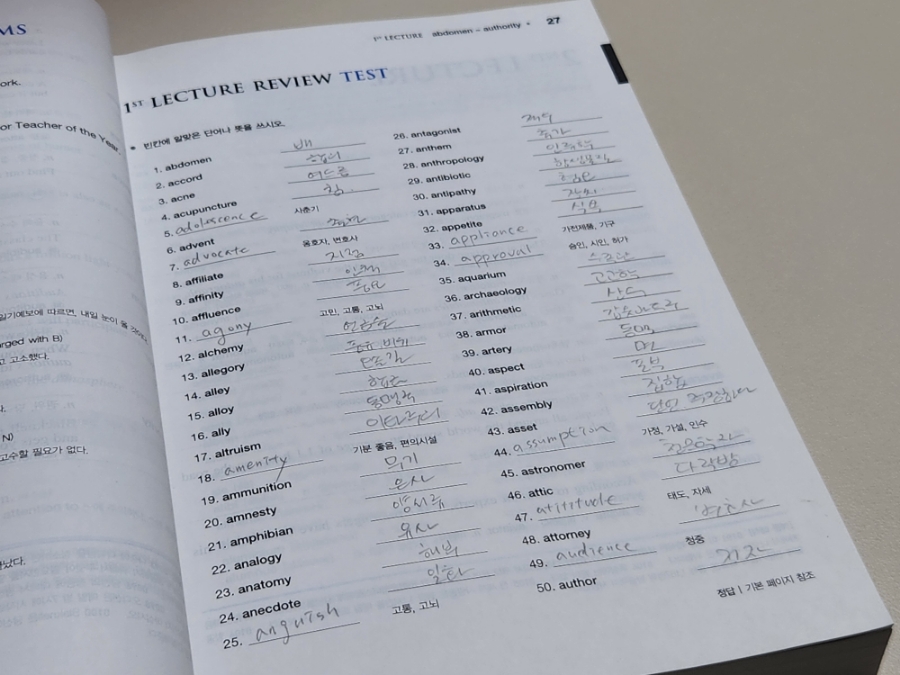 MS
ork.
or Teacher of the Year.
일기예보에 따르면, 내일 눈이 올 것이다.
arged with B)
고 고소했다.
N)
고수할 필요가 없다.
1ST LECTURE abdomen – authority • 27
1ST LECTURE REVIEW TEST
• 빈칸에 알맞은 단어나 뜻을 쓰시오.
1. abdomen 배
2. accord
3. acne 여드름
4. acupuncture 침
5. adolescence 사춘기
6. advent
7. advocate 옹호자, 변호사
8. affiliate 지점
9. affinity
10. affluence 풍요
11. agony 고민, 고통, 고뇌
12. alchemy 연금술
13. allegory 풍유, 비유
14. alley
15. alloy 합금
16. ally 동맹국
17. altruism 이타주의
18. amenity 기분 좋음, 편의시설
19. ammunition 무기
20. amnesty 은사
21. amphibian 양서류
22. analogy 유사
23. anatomy 해부
24. anecdote 일화
25. anguish 고통, 고뇌
26. antagonist
27. anthem
28. anthropology 인류학
29. antibiotic 항생물질
30. antipathy
31. apparatus
32. appetite 식욕
33. appliance 가전제품, 기구
34. approval 승인, 시인, 허가
35. aquarium 수족관
36. archaeology 고고학
37. arithmetic 산수
38. armor
39. artery 동맥
40. aspect 면
41. aspiration
42. assembly 집합
43. asset
44. assumption 가정, 가설, 인수
45. astronomer 천문학자
46. attic 다락방
47. atititude 태도, 자세
48. attorney 변호사
49. audience 청중
50. author 저자
정답 | 기본 페이지 참조